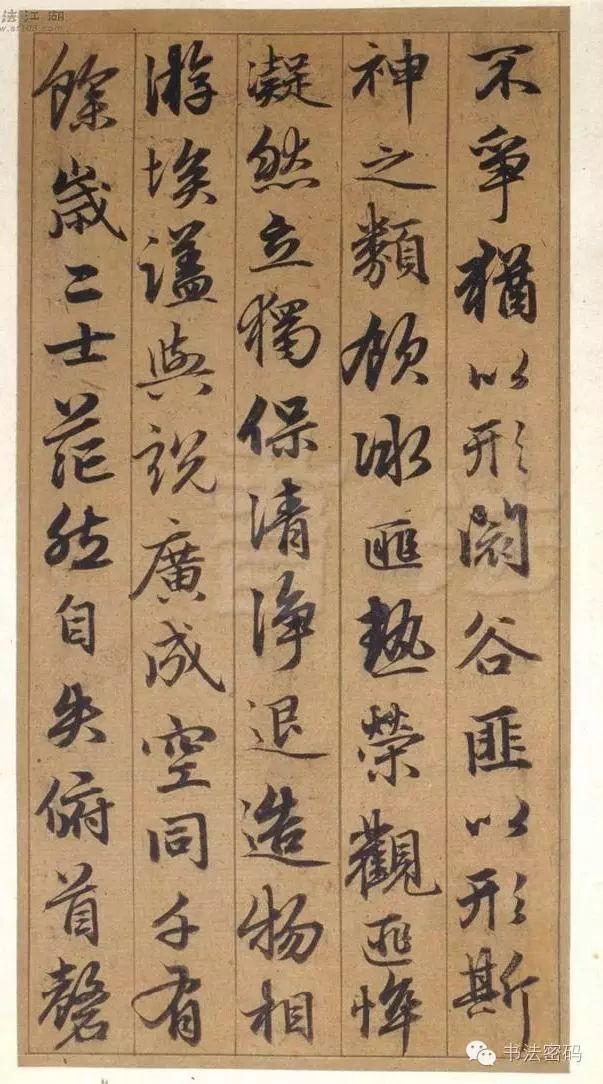 法江湖
不爭猶以形閡谷匪以形斯
神之類飲冰匪熱榮觀匪悴
凝然立獨保清淨退造物相
游埃與說廣成空同千有
餘歲二士茫然自失俯首磬
书法密码